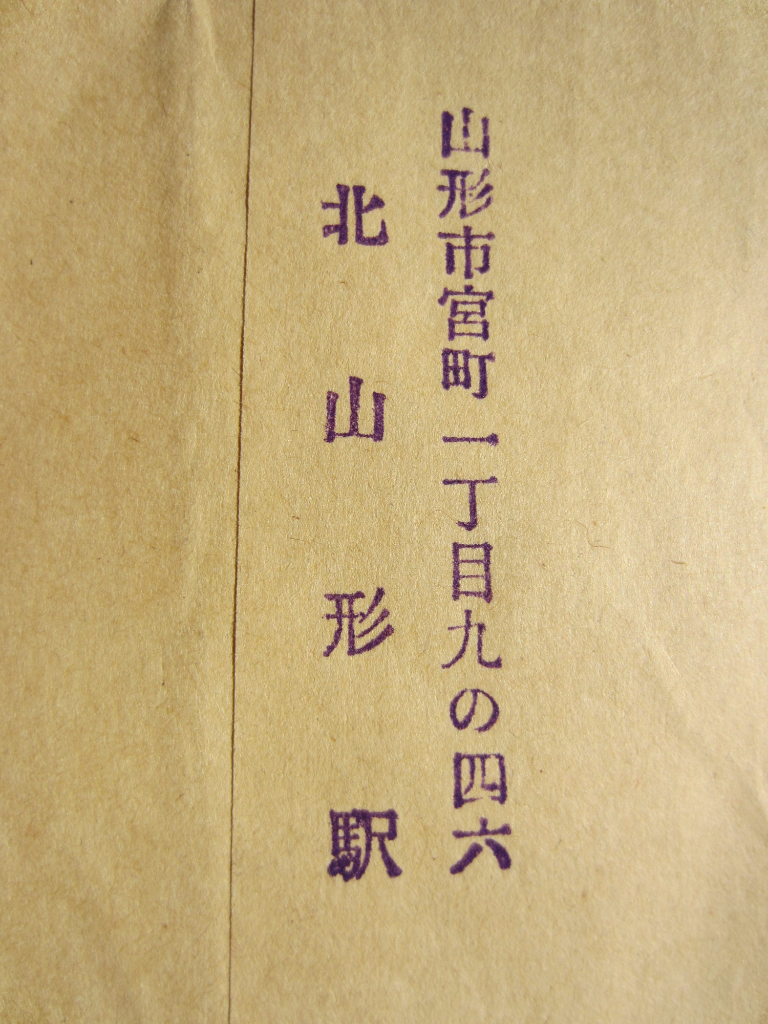 山形市宮町一丁目九の四六
北山形駅